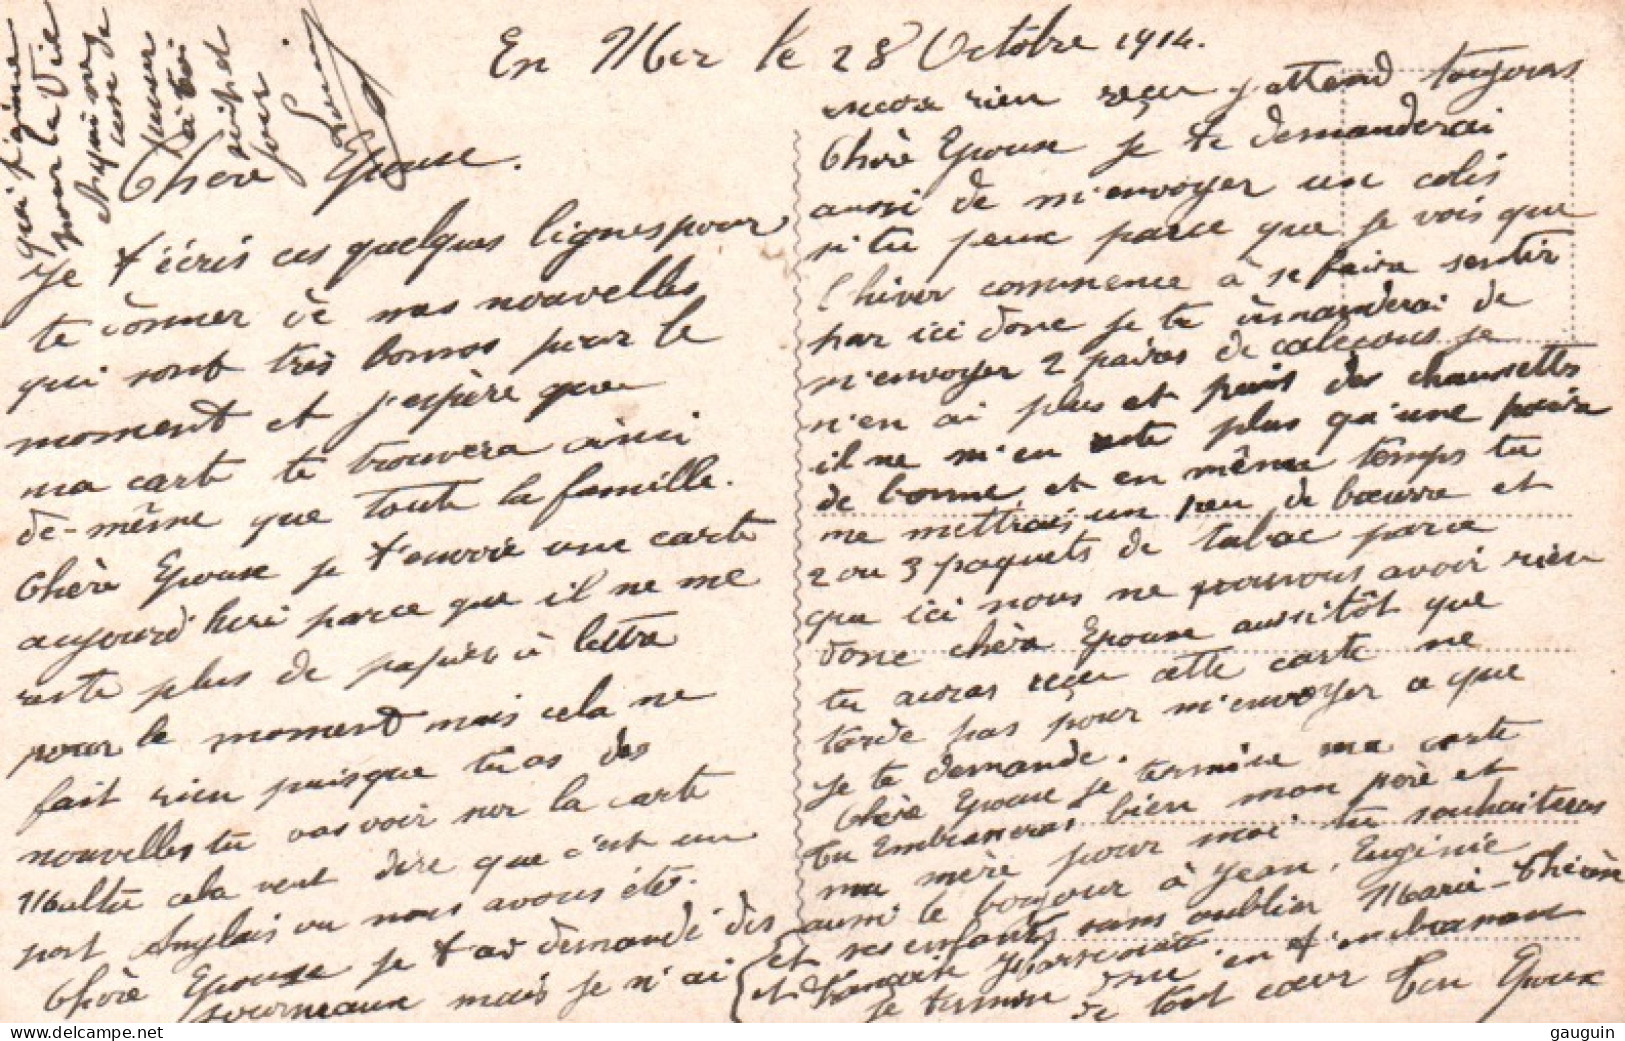 En Mer le 28 Octobre 1914.
Chère Epouse.
Je t'écris ces quelques lignes pour
te donner de mes nouvelles
qui sont très bonnes pour le
moment et j'espère que
ma carte te trouvera ainsi
de-même que toute la famille.
Chère Epouse je t'envoie une carte
aujourd'hui parce que il ne me
reste plus de papier à lettre
pour le moment mais cela ne
fait rien puisque tu as des
nouvelles tu vas voir sur la carte
Malte cela veut dire que c'est un
port Anglais ou nous avons été.
Chère Epouse je t'ai demandé des
journeaux mais je n'ai
encore rien reçu j'attend toujours
Chère Epouse je te demanderai
aussi de m'envoyer un colis
si tu peux parce que je vois que
l'hiver commence à se faire sentir
par ici donc je te demanderai de
m'envoyer 2 paires de caleçons je
n'en ai plus et puis des chaussettes
il ne m'en reste plus qu'une paire
de bonne, et en même temps tu
me mettrais un peu de beurre et
2 ou 3 paquets de tabac parce
que ici nous ne pouvons avoir rien
donc chère Epouse aussitôt que
tu auras reçu cette carte ne
tarde pas pour m'envoyer ce que
je te demande.
Chère Epouse je termine ma carte
tu embrasseras bien mon père et
ma mère pour moi tu souhaiteras
aussi le bonjour à Jean, Eugénie
et ses enfants sans oublier Marie-Thérèse
et
je termine donc en t'embrassant
de tout coeur Ton Epoux
qui t'aime
pour la Vie
et qui ne
penser
à toi
jour.
gauguin